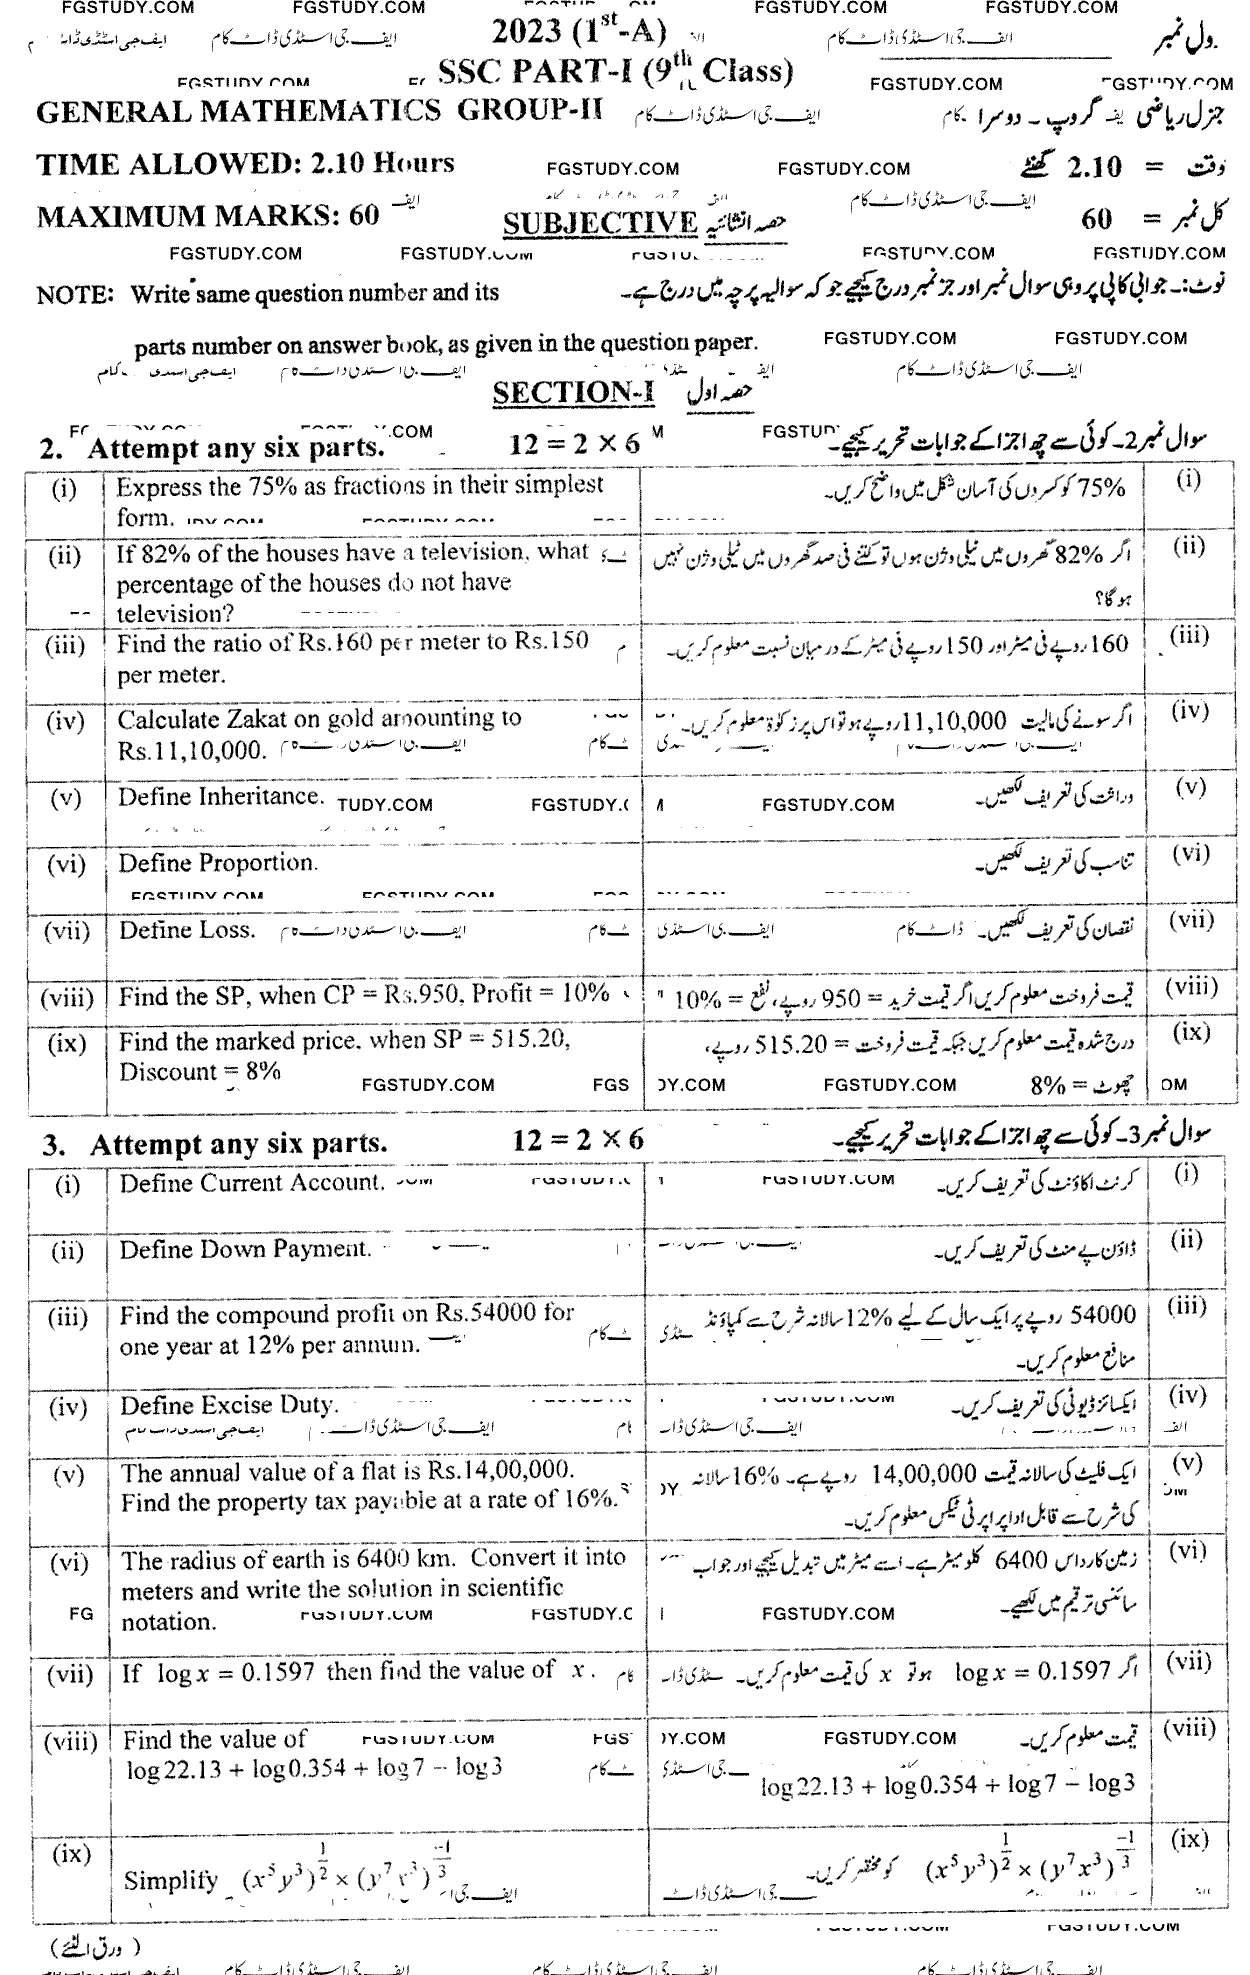 FGSTUDY.COM FGSTUDY.COM FGSTUDY.COM FGSTUDY.COM
2023 (1st-A)
ایف جی اسٹڈی ڈاٹ کام ایف جی اسٹڈی ڈاٹ کام رول نمبر
SSC PART-I (9th Class)
FGSTUDY.COM FGSTUDY.COM FGSTUDY.COM
GENERAL MATHEMATICS GROUP-II ایف جی اسٹڈی ڈاٹ کام جنرل ریاضی گروپ ۔ دوسرا
TIME ALLOWED: 2.10 Hours FGSTUDY.COM FGSTUDY.COM وقت = 2.10 گھنٹے
MAXIMUM MARKS: 60 SUBJECTIVE حصہ انشائیہ ایف جی اسٹڈی ڈاٹ کام کل نمبر = 60
FGSTUDY.COM FGSTUDY.COM FGSTUDY.COM FGSTUDY.COM
NOTE: Write same question number and its نوٹ:۔ جوابی کاپی پر وہی سوال نمبر اور جز نمبر درج کیجیے جو کہ سوالیہ پرچہ میں درج ہے۔
parts number on answer book, as given in the question paper. FGSTUDY.COM FGSTUDY.COM
ایف جی اسٹڈی ڈاٹ کام
SECTION-I حصہ اول
2. Attempt any six parts. 12 = 2 × 6 سوال نمبر 2۔ کوئی سے چھ اجزا کے جوابات تحریر کیجیے۔
(i) Express the 75% as fractions in their simplest 75% کو کسروں کی آسان شکل میں واضح کریں۔ (i)
form.
(ii) If 82% of the houses have a television, what اگر 82% گھروں میں ٹیلی وژن ہوں تو کتنے فی صد گھروں میں ٹیلی وژن نہیں (ii)
percentage of the houses do not have ہو گا؟
television?
(iii) Find the ratio of Rs.160 per meter to Rs.150 160 روپے فی میٹر اور 150 روپے فی میٹر کے درمیان نسبت معلوم کریں۔ (iii)
per meter.
(iv) Calculate Zakat on gold amounting to اگر سونے کی مالیت 11,10,000 روپے ہو تو اس پر زکوٰۃ معلوم کریں۔ (iv)
Rs.11,10,000. ایف جی اسٹڈی ڈاٹ کام
(v) Define Inheritance. FGSTUDY.COM وراثت کی تعریف لکھیں۔ (v)
(vi) Define Proportion. تناسب کی تعریف لکھیں۔ (vi)
FGSTUDY.COM FGSTUDY.COM
(vii) Define Loss. ایف جی اسٹڈی ڈاٹ کام نقصان کی تعریف لکھیں۔ (vii)
(viii) Find the SP, when CP = Rs.950, Profit = 10% قیمت فروخت معلوم کریں اگر قیمت خرید = 950 روپے، نفع = 10% (viii)
(ix) Find the marked price, when SP = 515.20, درج شدہ قیمت معلوم کریں جبکہ قیمت فروخت = 515.20 روپے، (ix)
Discount = 8% FGSTUDY.COM FGSTUDY.COM چھوٹ = 8%
3. Attempt any six parts. 12 = 2 × 6 سوال نمبر 3۔ کوئی سے چھ اجزا کے جوابات تحریر کیجیے۔
(i) Define Current Account. FGSTUDY.COM کرنٹ اکاؤنٹ کی تعریف کریں۔ (i)
(ii) Define Down Payment. ڈاؤن پے منٹ کی تعریف کریں۔ (ii)
(iii) Find the compound profit on Rs.54000 for 54000 روپے پر ایک سال کے لیے 12% سالانہ شرح سے کمپاؤنڈ (iii)
one year at 12% per annum. منافع معلوم کریں۔
(iv) Define Excise Duty. FGSTUDY.COM ایکسائز ڈیوٹی کی تعریف کریں۔ (iv)
ایف جی اسٹڈی ڈاٹ
(v) The annual value of a flat is Rs.14,00,000. ایک فلیٹ کی سالانہ قیمت 14,00,000 روپے ہے۔ 16% سالانہ (v)
Find the property tax payable at a rate of 16%. کی شرح سے قابل ادا پراپرٹی ٹیکس معلوم کریں۔
(vi) The radius of earth is 6400 km. Convert it into زمین کا رداس 6400 کلومیٹر ہے۔ اسے میٹر میں تبدیل کیجیے اور جواب (vi)
meters and write the solution in scientific سائنسی ترقیم میں لکھیے۔
notation. FGSTUDY.COM FGSTUDY.COM
(vii) If log x = 0.1597 then find the value of x. اگر log x = 0.1597 ہو تو x کی قیمت معلوم کریں۔ (vii)
(viii) Find the value of FGSTUDY.COM FGSTUDY.COM قیمت معلوم کریں۔ (viii)
log 22.13 + log 0.354 + log 7 − log 3 log 22.13 + log 0.354 + log 7 − log 3
(ix) Simplify (x⁵y³)^(1/2) × (y⁷x³)^(−1/3) (x⁵y³)^(1/2) × (y⁷x³)^(−1/3) کو مختصر کریں۔ (ix)
FGSTUDY.COM FGSTUDY.COM
(ورق الٹئے)
ایف جی اسٹڈی ڈاٹ کام ایف جی اسٹڈی ڈاٹ کام ایف جی اسٹڈی ڈاٹ کام